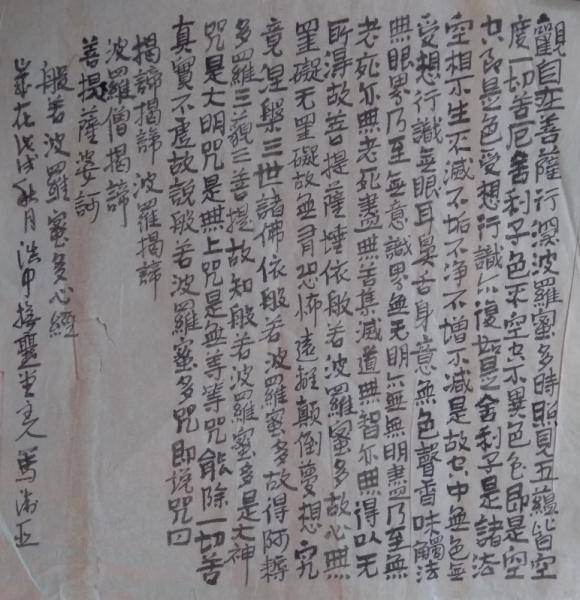 觀自在菩薩行深波羅蜜多時照見五蘊皆空
度一切苦厄舍利子色不空空不異色色即是空
空即是色受想行識亦復如是舍利子是諸法
空相不生不滅不垢不净不增不減是故空中無色無
受想行識無眼耳鼻舌身意無色聲香味觸法
無眼界乃至無意識界無无明亦無無明盡乃至無
老死亦無老死盡無苦集滅道無智亦無得以无
所得故菩提薩埵依般若波羅蜜多故心無
罣礙无罣礙故無有恐怖遠離顛倒夢想究
竟涅槃三世諸佛依般若波羅蜜多故得阿耨
多羅三藐三菩提故知般若波羅蜜多是大神
咒是大明咒是無上咒是無等等咒能除一切苦
真實不虛故說般若波羅蜜多咒即說咒曰
揭諦揭諦波羅揭諦
波羅僧揭諦
菩提薩婆訶
般若波羅蜜多心經
歲在戊戌秋月